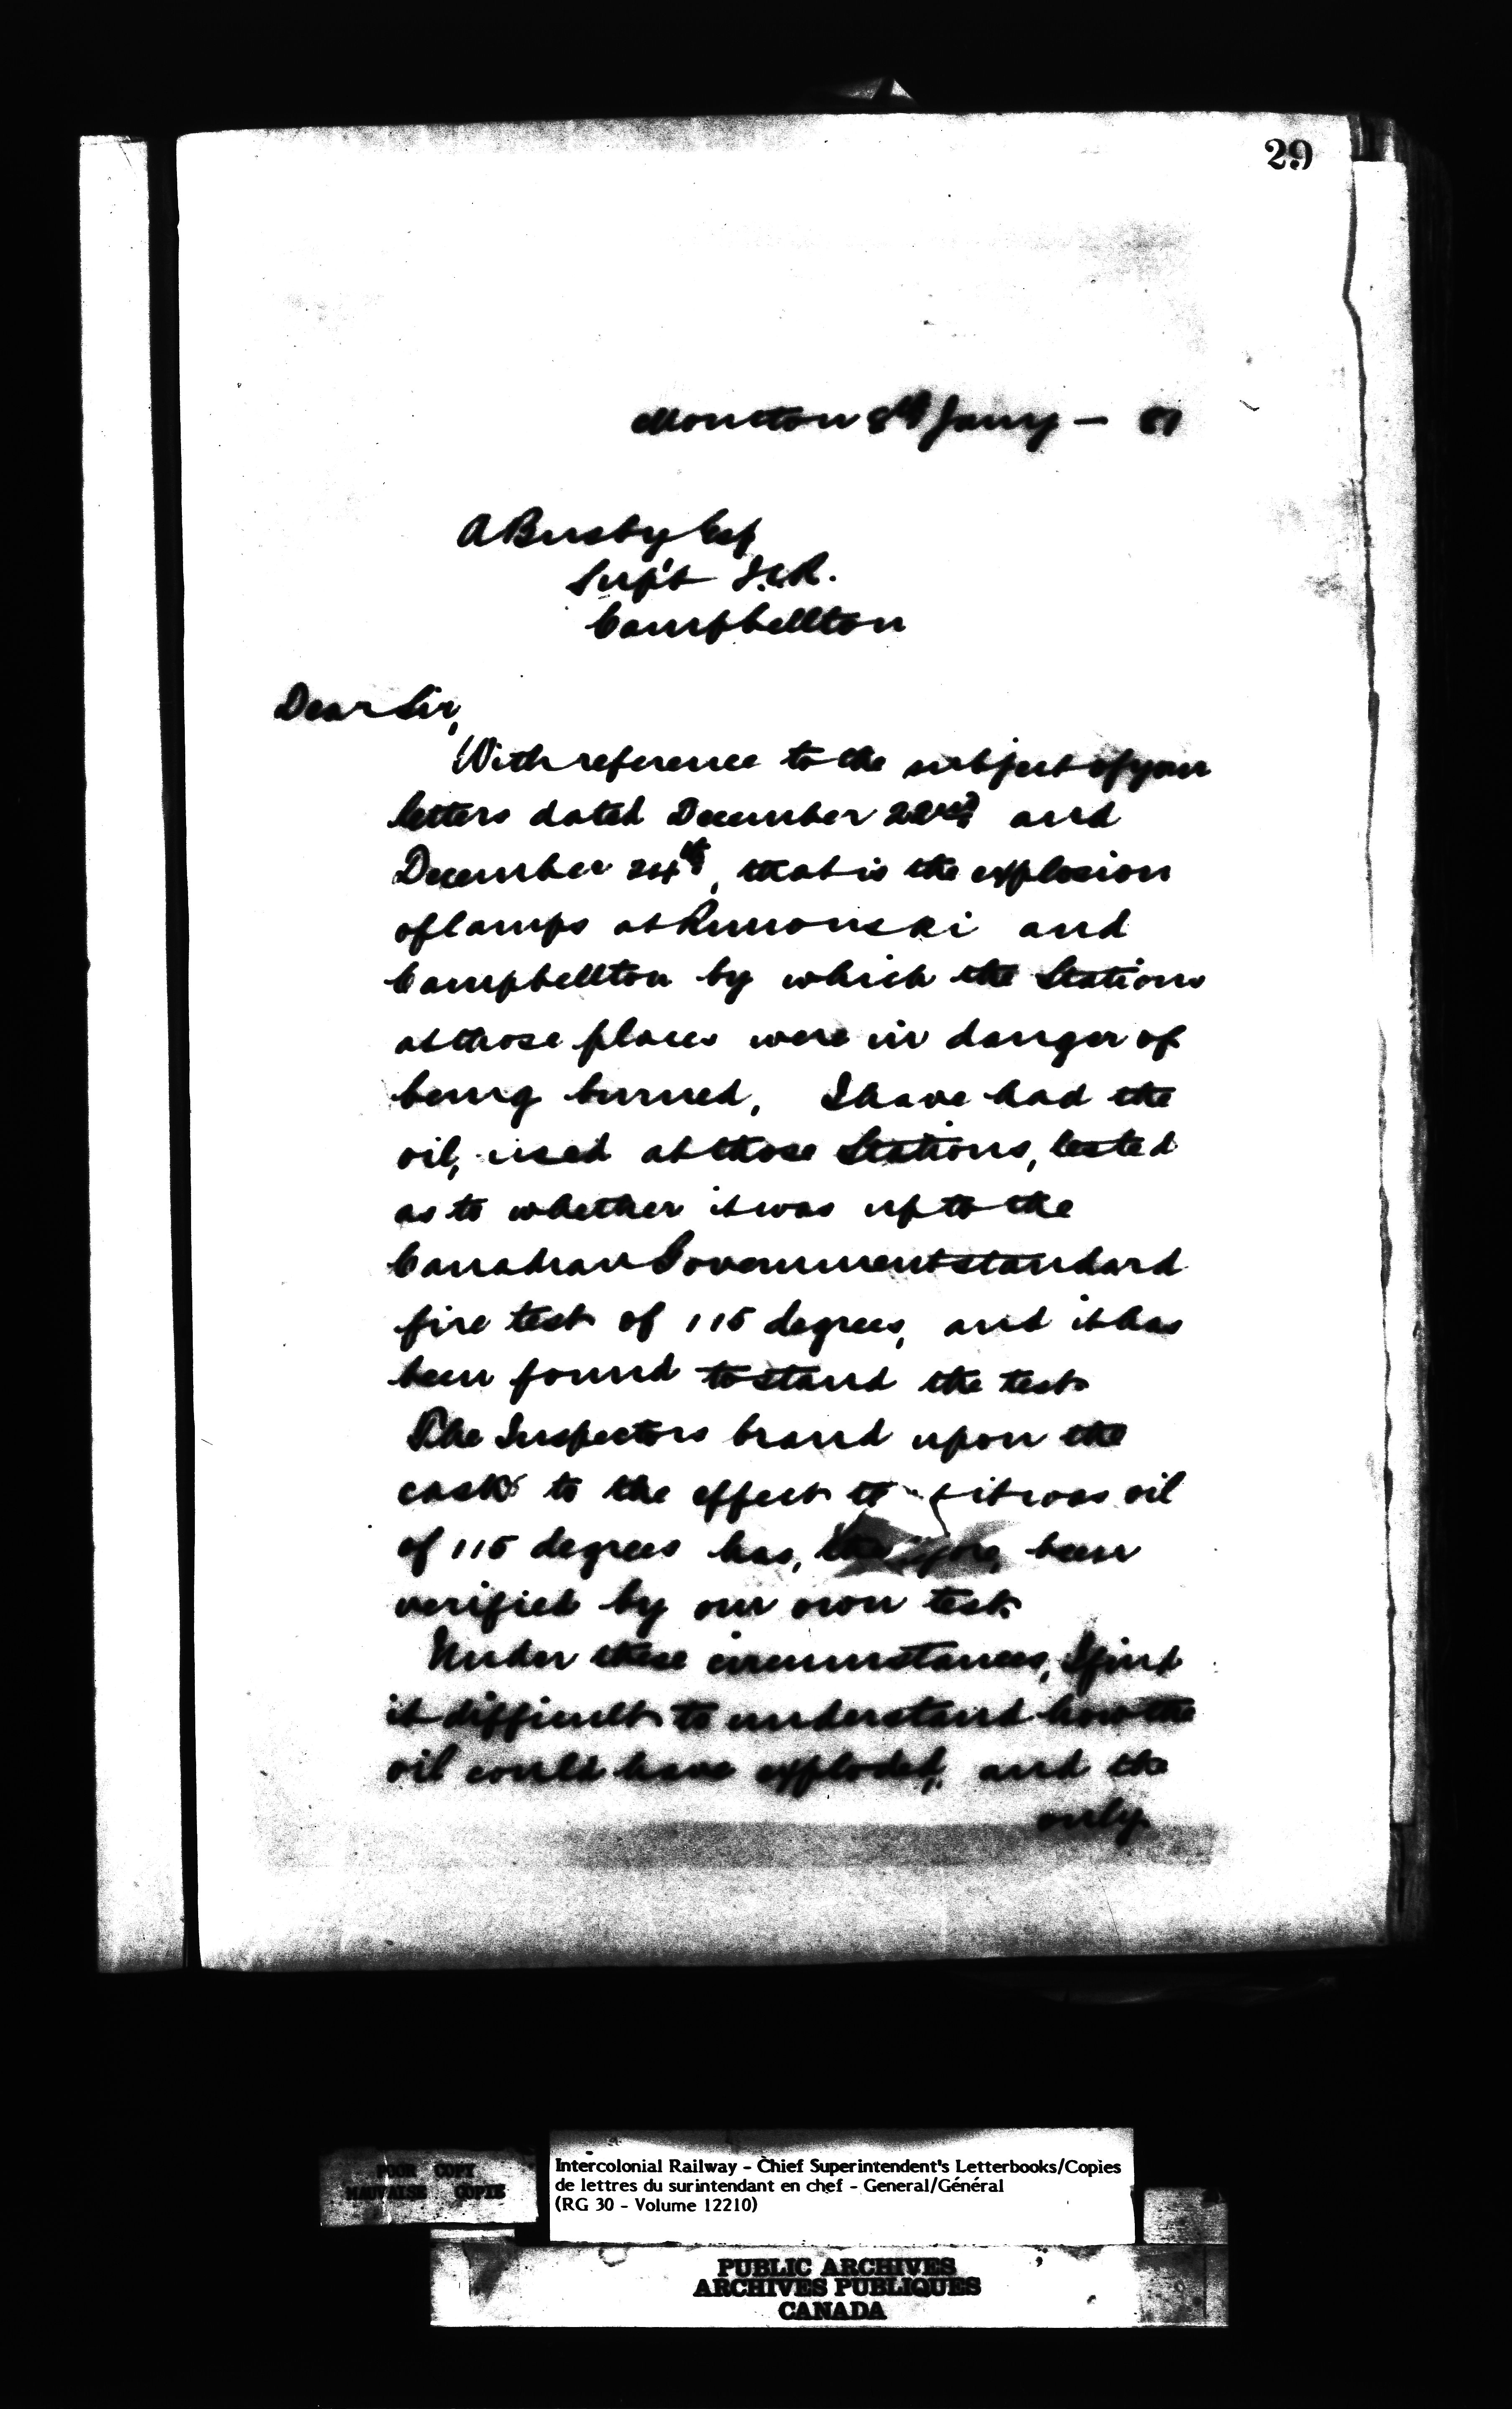 29
Moncton 8th Jany - 81
A Busby Esq
Sup't I.C.R.
Campbellton
Dear Sir,
With reference to the subject of your
letters dated December 22nd and
December 24th, that is the explosion
of lamps at Rimouski and
Campbellton by which the Stations
at those places were in danger of
being burned, I have had the
oil, used at those Stations, tested
as to whether it was up to the
Canadian Government standard
fire test of 115 degrees, and it has
been found to stand the test
The Inspectors brand upon the
cask to the effect it was oil
of 115 degrees has, therefore, been
verified by our own test.
Under these circumstances, I find
it difficult to understand how the
oil could have exploded, and the
only
POOR COPY
MAUVAISE COPIE
Intercolonial Railway - Chief Superintendent's Letterbooks/Copies
de lettres du surintendant en chef - General/Général
(RG 30 - Volume 12210)
PUBLIC ARCHIVES
ARCHIVES PUBLIQUES
CANADA